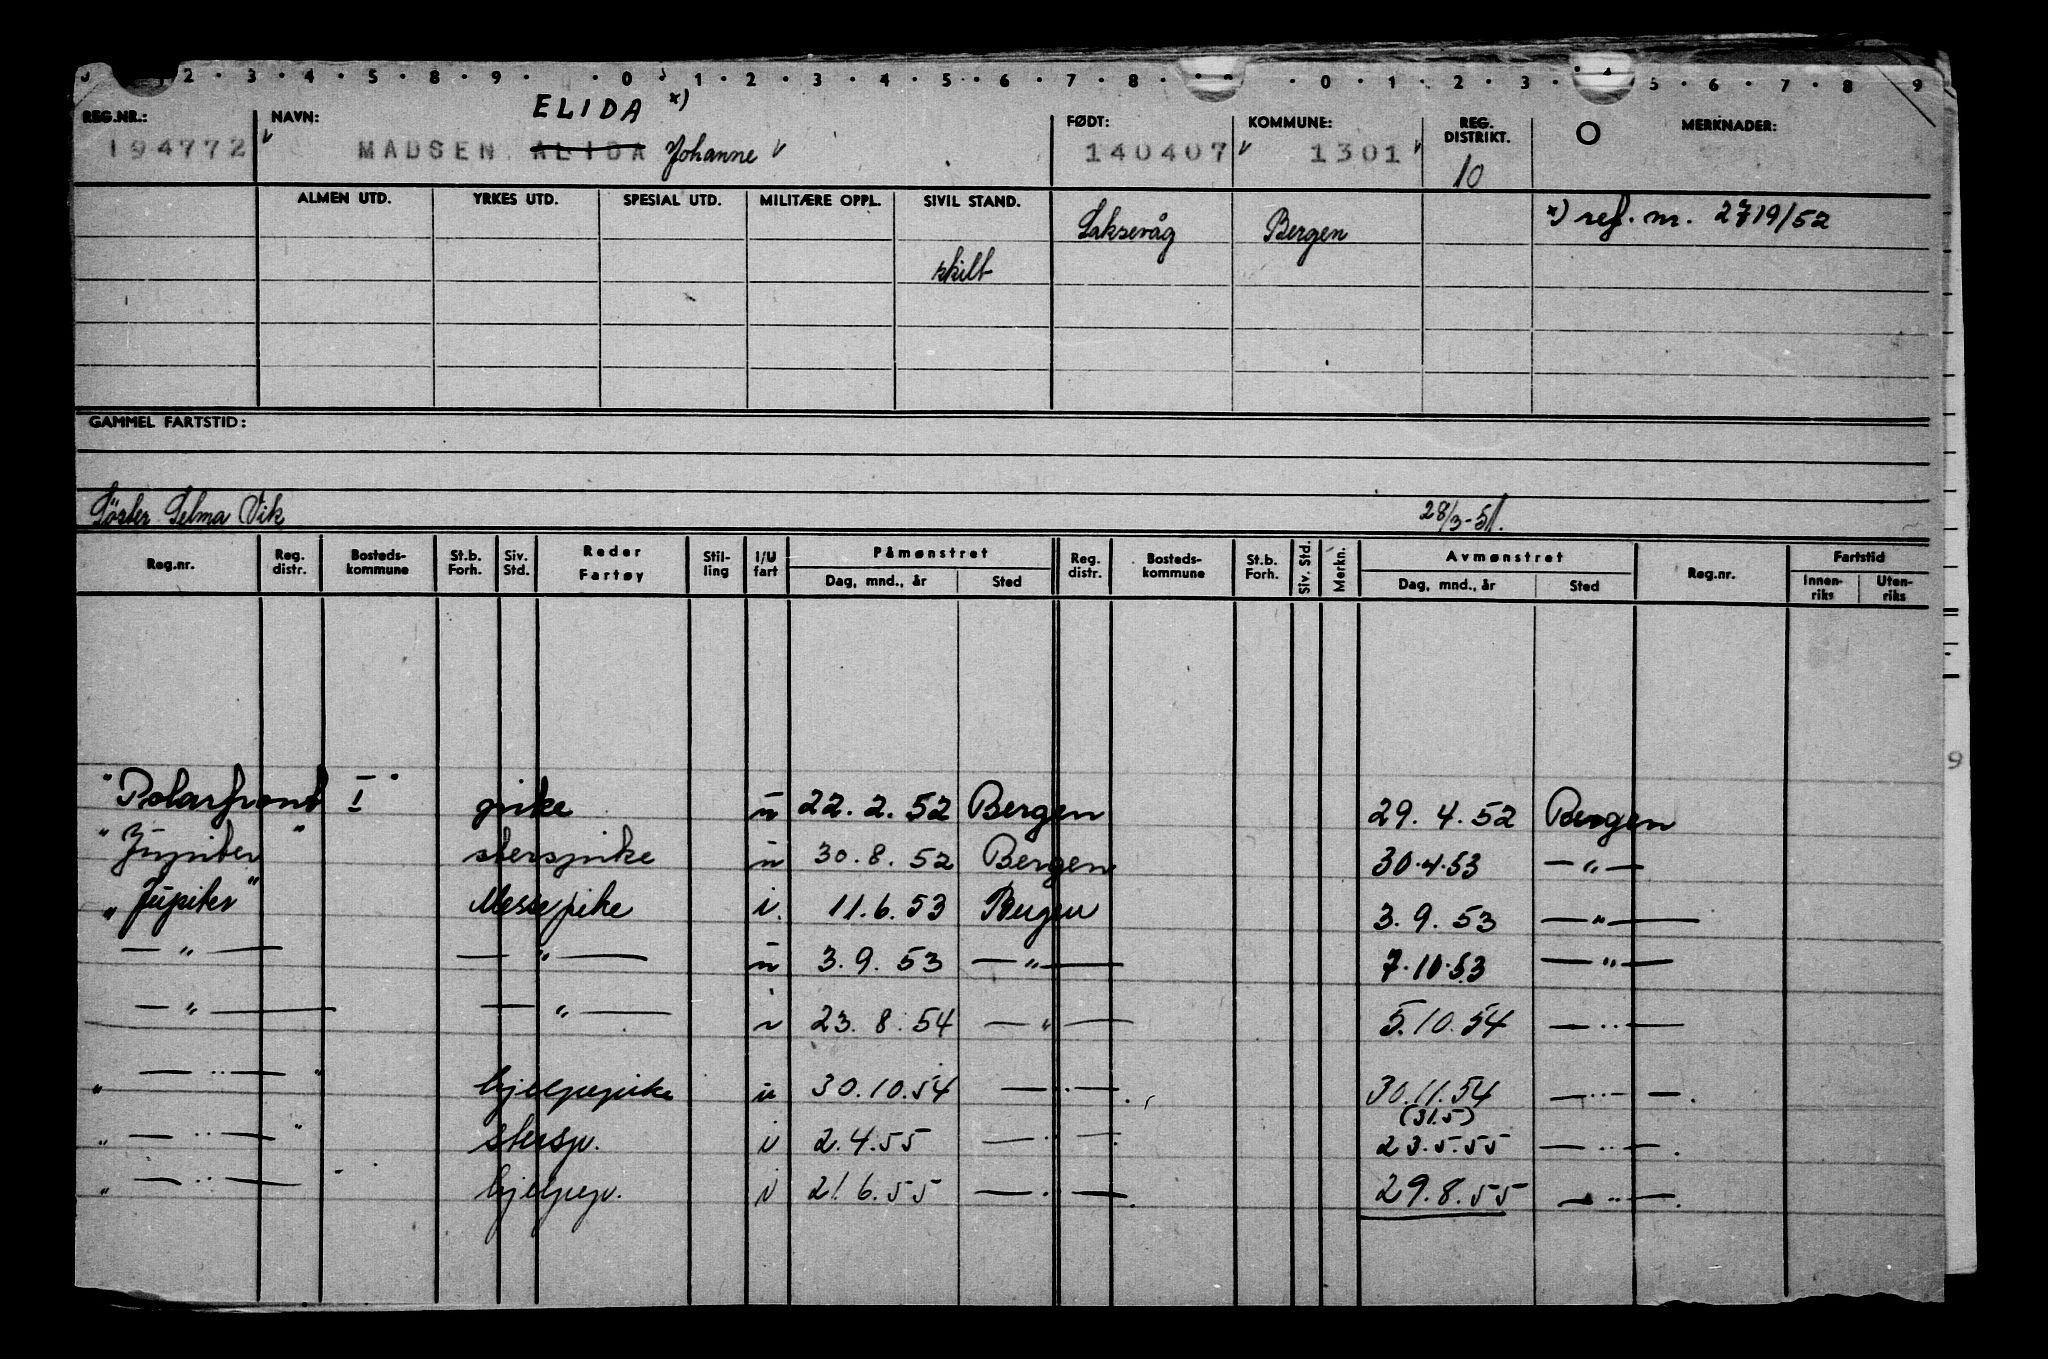 2 · 3 · 4 · 5 · 8 · 9 · · 0 · 1 · 2 · 3 · 4 · 5 · 6 · 7 · 8 · · 0 · 1 · 2 · 3 · 4 · 5 · 6 · 7 · 8 · 9
ELIDA x)
REG.NR.: NAVN: FØDT: KOMMUNE: REG. DISTRIKT. MERKNADER:
194772 MADSEN ALIDA Johanne 140407 1301 10
ALMEN UTD. YRKES UTD. SPESIAL UTD. MILITÆRE OPPL. SIVIL STAND. Laksevåg Bergen x) ref. nr. 2719/52
skilt
GAMMEL FARTSTID:
Söster Selma Vik 28/3-51.
Reg.nr. Reg. distr. Bosteds-kommune St.b. Forh. Siv. Std. Reder Fartøy Stil-ling I/U fart Påmønstret Reg. distr. Bosteds-kommune St.b. Forh. Siv. Std. Merkn. Avmønstret Reg.nr. Fartstid
Dag, mnd., år Sted Dag, mnd., år Sted Innen-riks Uten-riks
"Polarfront I" pike u 22.2.52 Bergen 29.4.52 Bergen
"Jupiter" sterspike u 30.8.52 Bergen 30.4.53 — " —
"Jupiter" Messepike i. 11.6.53 Bergen 3.9.53 — " —
— " — — " — u 3.9.53 — " — 7.10.53 — " —
— " — — " — i 23.8.54 — " — 5.10.54 — " —
" — " — " hjelpepike u 30.10.54 — " — 30.11.54 — " —.
(31.5)
" — " — " stersp. i 2.4.55 — " — 23.5.55 — " —.
" — " — " hjelpep. i 21.6.55 — " —. 29.8.55 — " —.
9